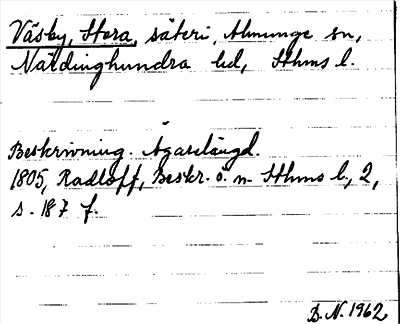 Väsby, Stora, säteri, Almunge sn,
Närdinghundra hd, Sthms l.
Beskrivning. Ägarelängd.
1805, Radloff, Beskr. ö. n. Sthms l., 2,
s. 187 f.
B.N. 1962